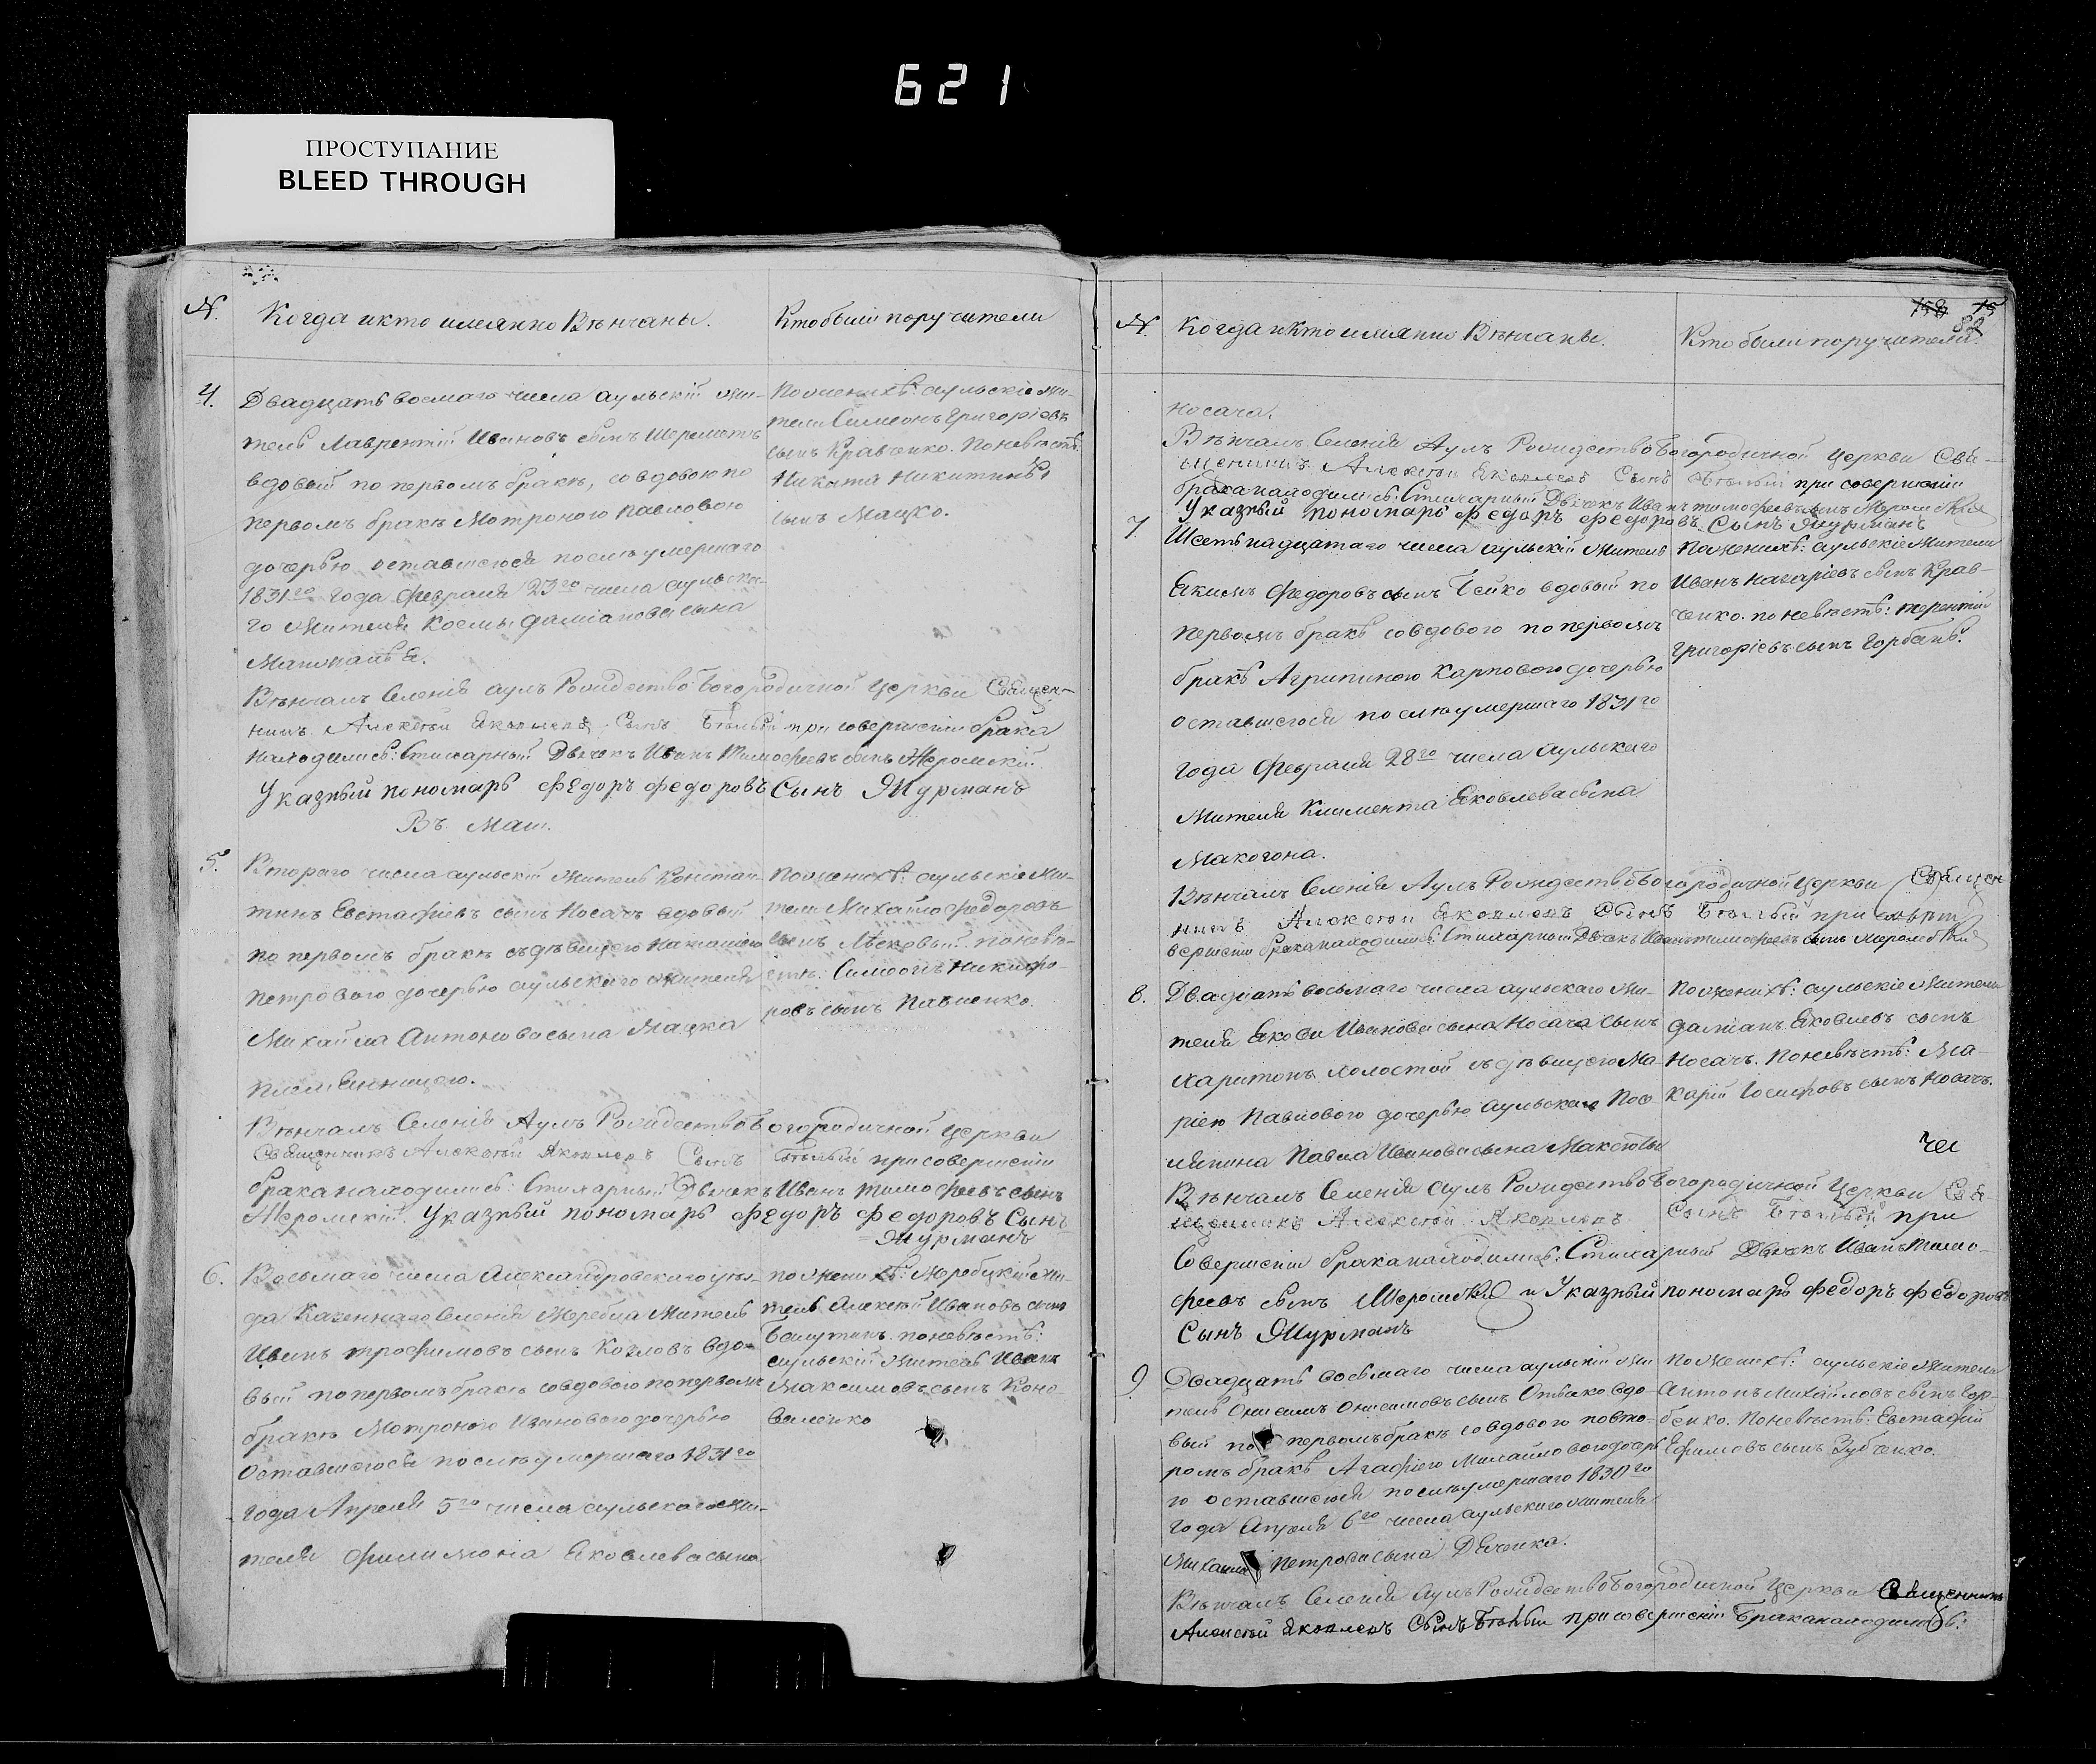 621
ПРОСТУПАНИЕ
BLEED THROUGH
№.
Когда и кто имянно Вѣнчаны.
Кто были поручители
4.
Двадцать восмаго числа аульскій жи-
тель Лаврентій Ивановъ сынъ Шереметъ
вдовый по первомъ бракѣ, со вдовою по
первомъ бракѣ Мотроною Павловою
дочерью оставшеюся послѣ умершаго
1831го года Февраля 23го числа аульска-
го жителя Космы Даміанова сына
Вѣнчалъ Селенія Аулъ Рождество Богородичной Церкви Священ-
никъ Алексѣй Яковлевъ Сынъ Бѣлый при совершеніи брака
находились: Стихарный Дьячокъ Иванъ Тимофеевъ сынъ Жеромскій
Указный пономарь Федоръ Федоровъ Сынъ Журманъ
По женихѣ: аульскіе жи-
тели Симеонъ Григоріевъ
сынъ Кравченко. По невѣстѣ:
Никита Никитинъ
сынъ Мацко.
Въ Маи.
5.
Втораго числа аульскій житель Констан-
тинъ Евстафіевъ сынъ Носачъ вдовый
по первомъ бракѣ съ дѣвицею
Петровою дочерью аульскаго жителя
Михайла Антонова сына Мацка
Вѣнчалъ Селенія Аулъ Рождество Богородичной Церкви
Священникъ Алексѣй Яковлевъ Сынъ Бѣлый при совершеніи
брака находились: Стихарный Дьячокъ Иванъ Тимофеевъ сынъ
Жеромскій. Указный пономарь Федоръ Федоровъ Сынъ
Журманъ
По женихѣ: аульскіе жи-
тели Михайло Федоровъ
сынъ Лѣсковый. по невѣ-
стѣ: Симеонъ Никифо-
ровъ сынъ Павленко.
6.
Восьмаго числа Александровскаго уѣз-
да Казеннаго Селенія Жеребца Житель
Иванъ Трофимовъ сынъ Козловъ вдо-
вый по первомъ бракѣ со вдовою по первомъ
бракѣ Мотроною Ивановою дочерью
Оставшеюся послѣ умершаго 1831го
года Апреля 5го числа аульскаго жи-
теля Филимона Яковлева сына
по женихѣ: Жеребецкій жи-
тель Алексѣй Ивановъ сынъ
по невѣстѣ:
аульскій житель Иванъ
Максимовъ сынъ Коно-
валенко
№.
Когда и кто имянно Вѣнчаны.
Кто были поручители
158 15
82
Носача.
Вѣнчалъ Селенія Аулъ Рождество Богородичной Церкви Свя-
щенникъ Алексѣй Яковлевъ Сынъ Бѣлый при совершеніи
брака находились: Стихарный Дьячокъ Иванъ Тимофеевъ сынъ Жеромскій
Указный пономарь Федоръ Федоровъ Сынъ Журманъ
7.
Шестнадцатаго числа аульскій житель
Якимъ Федоровъ сынъ Бейко вдовый по
первомъ бракѣ со вдовою по первомъ
бракѣ Агрипиною Карповою дочерью
оставшеюся послѣ умершаго 1831го
года Февраля 28го числа аульскаго
Жителя Климента Яковлева сына
Макогона.
Вѣнчалъ Селенія Аулъ Рождество Богородичной Церкви Священ
никъ Алексѣй Яковлевъ Сынъ Бѣлый при
вершеніи брака находились: Стихарный Дьячокъ Иванъ Тимофеевъ сынъ Жеромскій
По женихѣ: аульскіе жители
Иванъ Назаріевъ сынъ Крав-
ченко. по невѣстѣ: Терентій
Григоріевъ сынъ Горбань.
8.
Двадцать восьмаго числа аульскаго жи-
теля Якова Иванова сына Носача сынъ
Харитонъ холостой съ дѣвицею Ма-
ріею Павловою дочерью аульскаго
Павла Иванова сына
Вѣнчалъ Селенія Аулъ Рождество Богородичной Церкви Свя-
щенникъ Алексѣй Яковлевъ Сынъ Бѣлый при
Совершеніи брака находились: Стихарный Дьячокъ Иванъ Тимо-
феевъ сынъ Жеромскій и Указный пономарь Федоръ Федоровъ
Сынъ Журманъ
По женихѣ: аульскіе жители
Даміанъ Яковлевъ сынъ
Носачъ. По невѣстѣ: Ма-
карій Іосифовъ сынъ Носачъ.
9
Двадцать восьмаго числа аульскій жи
тель Онисимъ Онисимовъ сынъ вдо-
вый по первомъ бракѣ со вдовою по вто-
ромъ бракѣ Агафіею Михайловою дочерь
оставшеюся послѣ умершаго 1830го
года Апреля 6го числа аульскаго жителя
Михаила Петрова сына Дяченка.
Вѣнчалъ Селенія Аулъ Рождество Богородичной Церкви Священникъ
Алексѣй Яковлевъ Сынъ Бѣлый при совершеніи Брака находились:
По женихѣ: аульскіе жители
Антонъ Михайловъ сынъ Гор-
бенко. По невѣстѣ: Евстафій
Ефимовъ сынъ Зубченко.